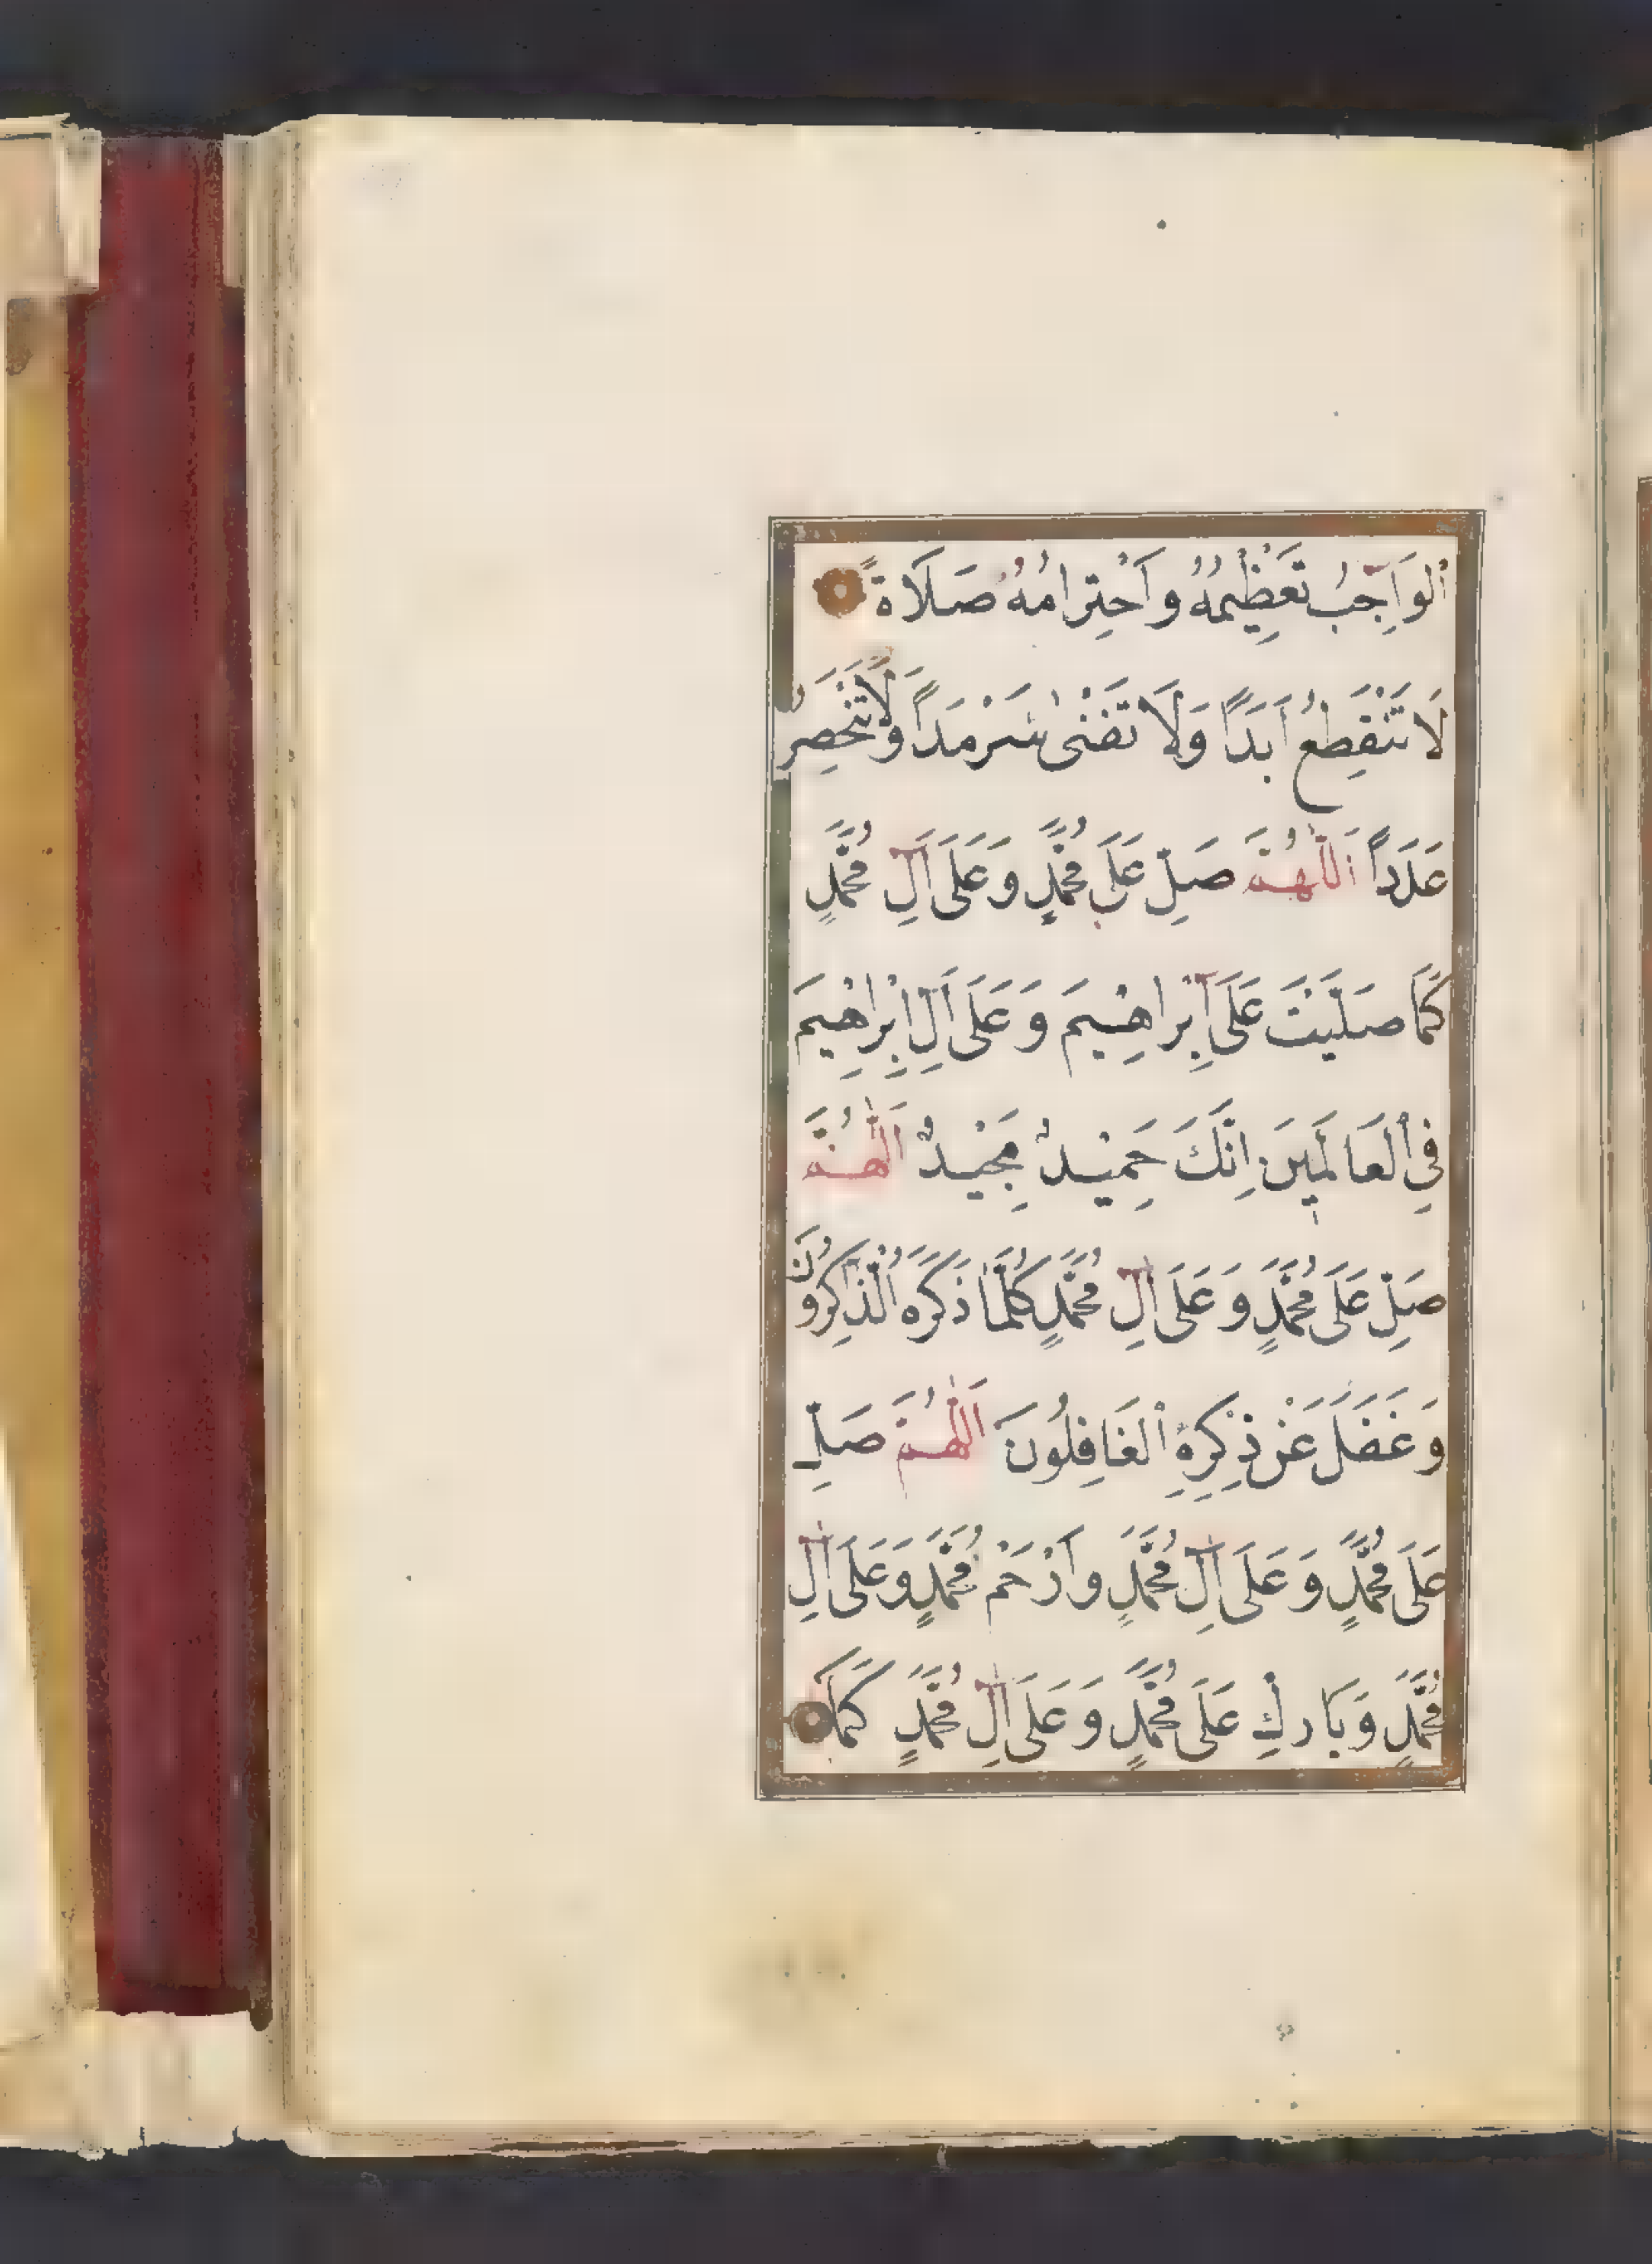 اَلْوَاجِبُ تَعْظِيمُهُ وَاَحْتِرَامُهُ صَلَاةً
لَا تَنْقَطِعُ اَبَدًا وَلَا تَفْنٰى سَرْمَدًا وَلَا تَنْحَصِرُ
عَدَدًا اَللّٰهُمَّ صَلِّ عَلَى مُحَمَّدٍ وَعَلَى اٰلِ مُحَمَّدٍ
كَمَا صَلَّيْتَ عَلَى اِبْرَاهِيمَ وَعَلَى اٰلِ اِبْرَاهِيمَ
فِي الْعَالَمِينَ اِنَّكَ حَمِيْدٌ مَجِيْدٌ اَللّٰهُمَّ
صَلِّ عَلَى مُحَمَّدٍ وَعَلَى اٰلِ مُحَمَّدٍ كُلَّمَا ذَكَرَهُ الذَّاكِرُونَ
وَغَفَلَ عَنْ ذِكْرِهِ الْغَافِلُونَ اَللّٰهُمَّ صَلِّ
عَلَى مُحَمَّدٍ وَعَلَى اٰلِ مُحَمَّدٍ وَاَرْحَمْ مُحَمَّدٍ وَعَلَى اٰلِ
مُحَمَّدٍ وَبَارِكْ عَلَى مُحَمَّدٍ وَعَلَى اٰلِ مُحَمَّدٍ كَمَا